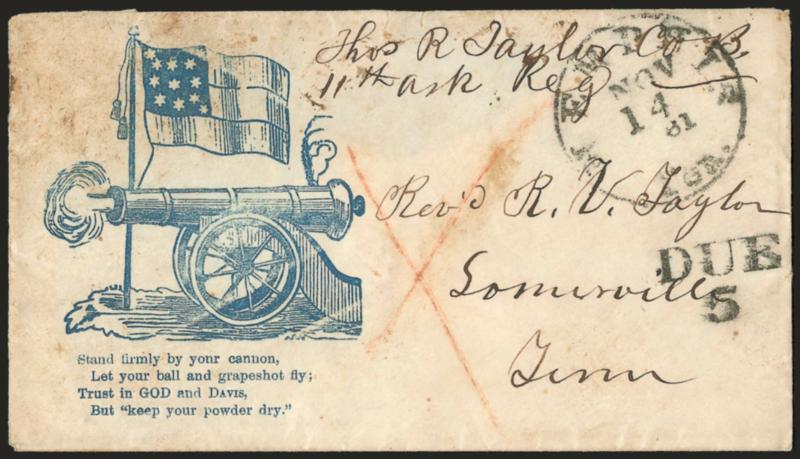 Thos R Taylor Co B.
11th Ark Reg
MEMPHIS Ten.
NOV
14
61
Rev'd R. V. Taylor
DUE
5
Somerville
Tenn
Stand firmly by your cannon,
Let your ball and grapeshot fly;
Trust in GOD and DAVIS,
But "keep your powder dry."